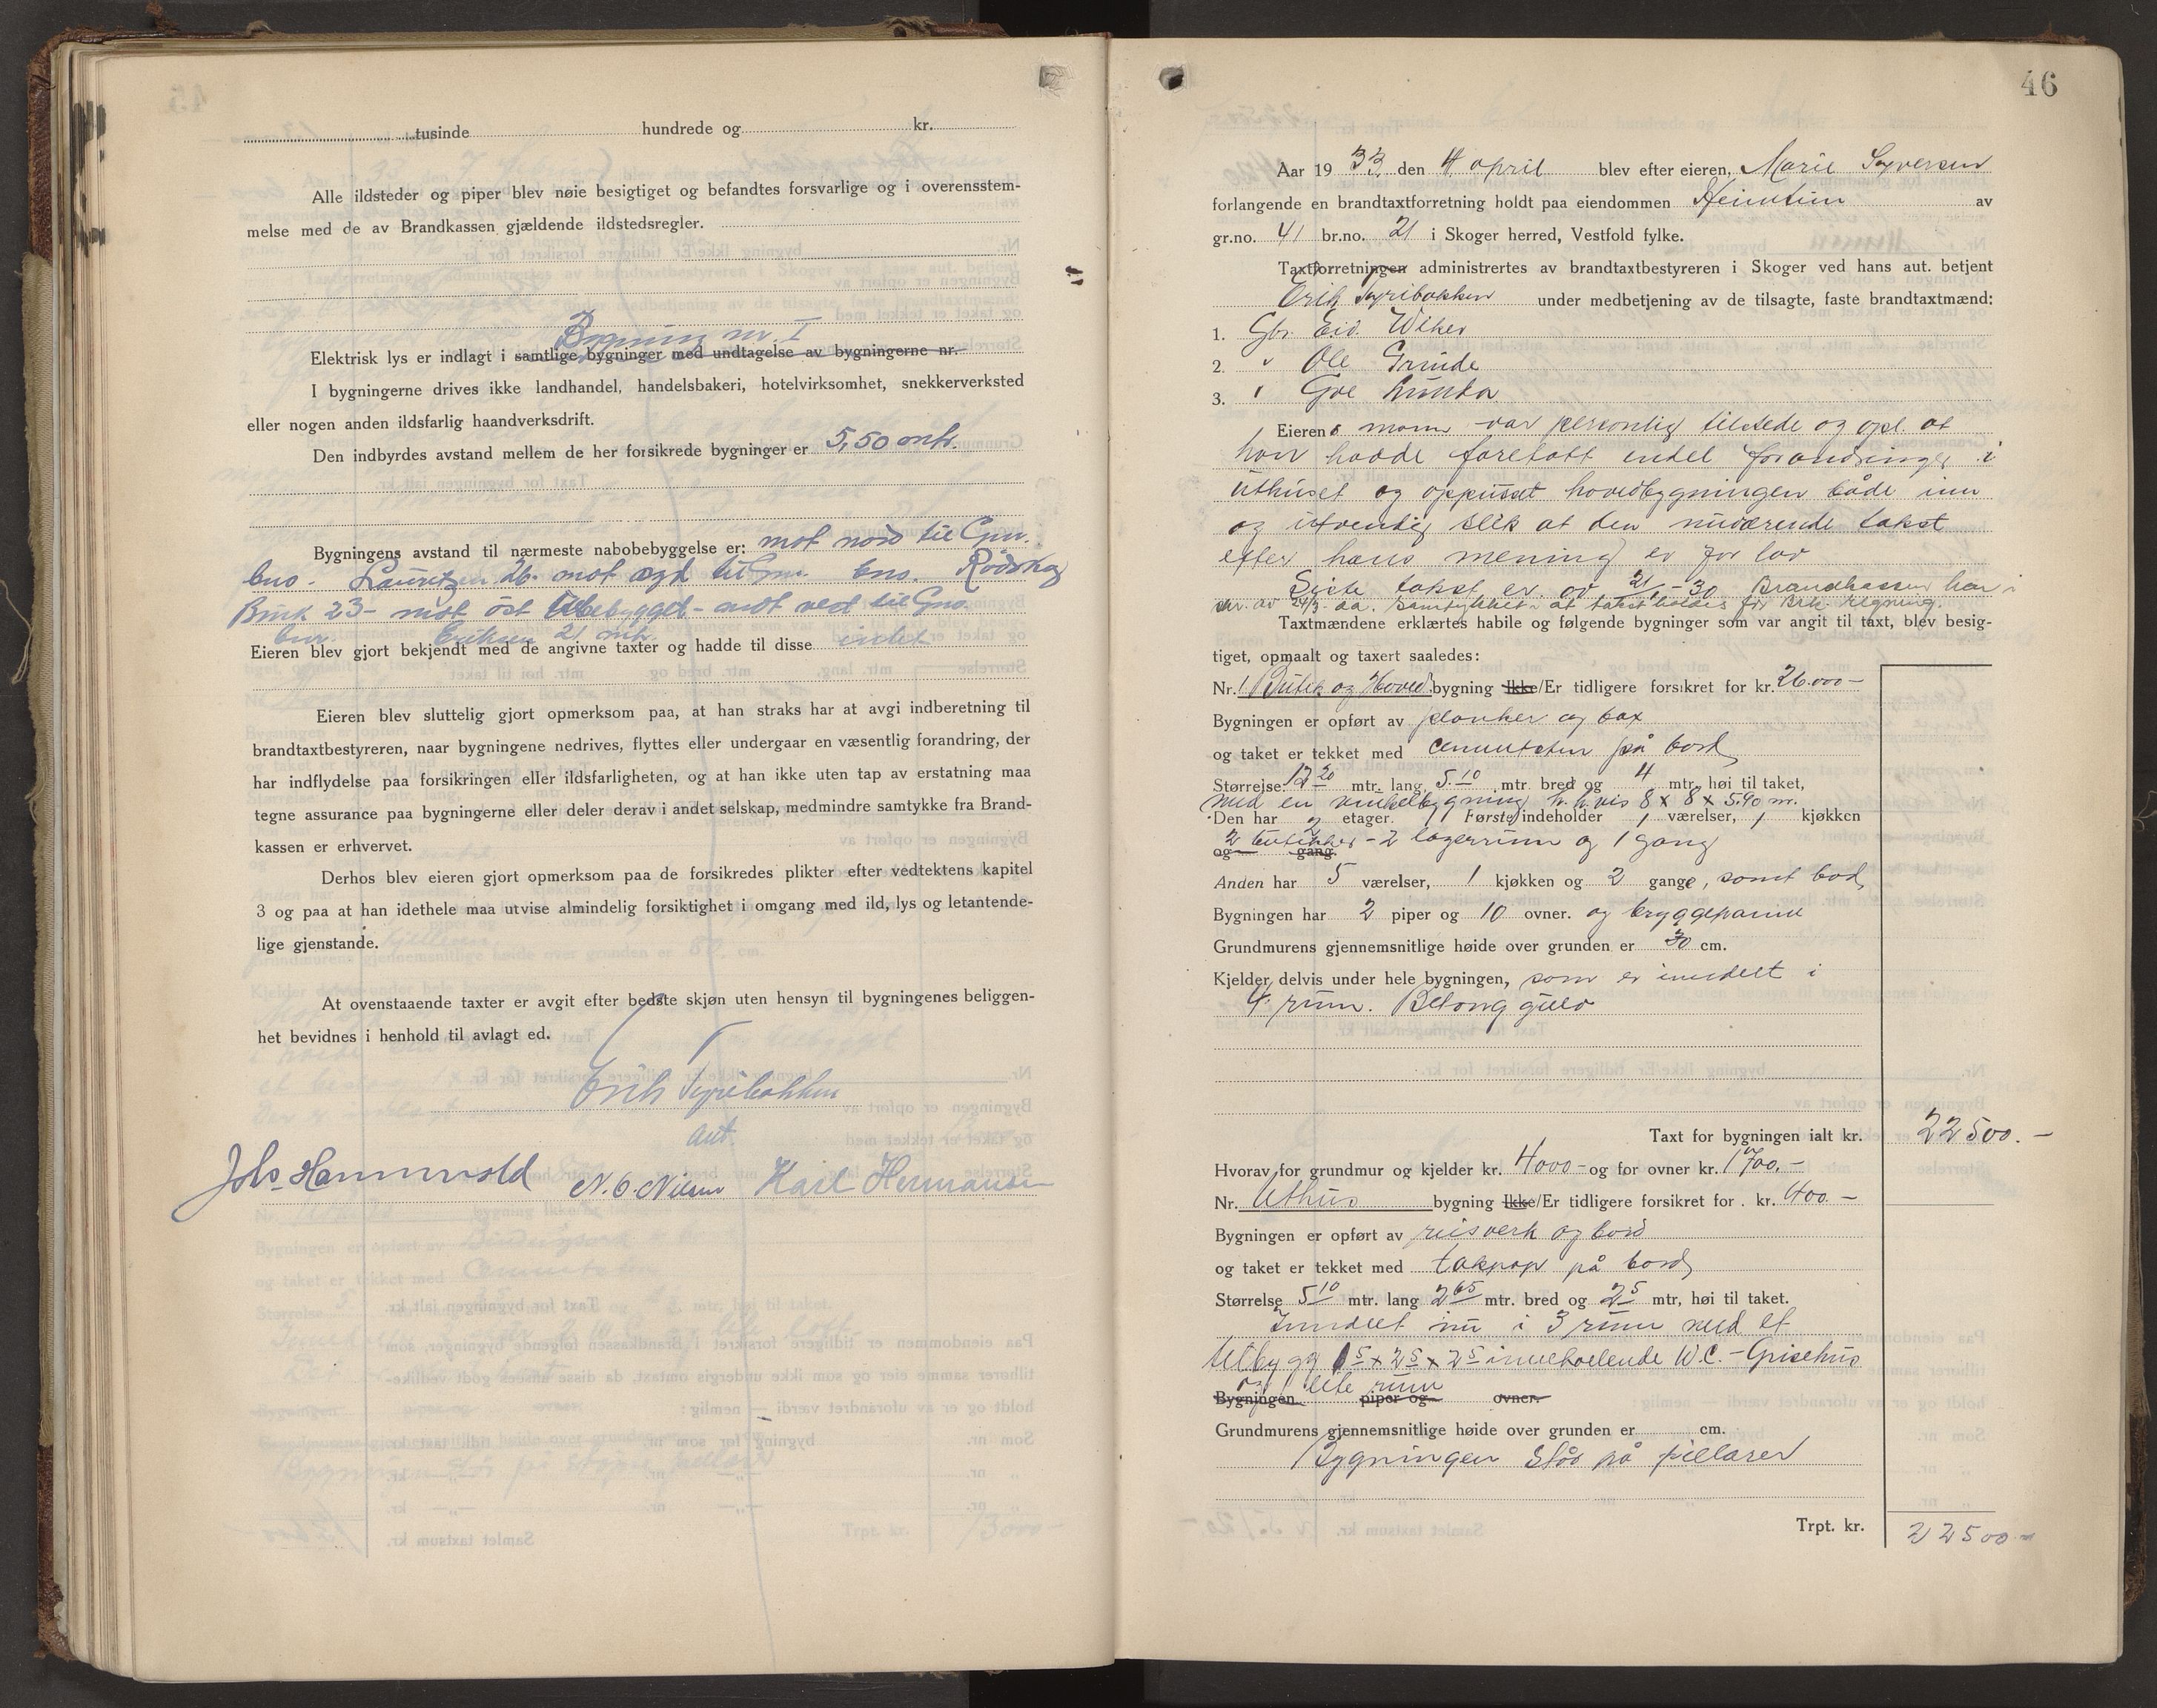 tusinde hundrede og kr.
Alle ildsteder og piper blev nøie besigtiget og befandtes forsvarlige og i overensstem-
melse med de av Brandkassen gjældende ildstedsregler.
Bygning nr. I
Elektrisk lys er indlagt i samtlige bygninger med undtagelse av bygningerne nr.
I bygningerne drives ikke landhandel, handelsbakeri, hotelvirksomhet, snekkerverksted
eller nogen anden ildsfarlig haandverksdrift.
Den indbyrdes avstand mellem de her forsikrede bygninger er 5,50 mtr.
Bygningens avstand til nærmeste nabobebyggelse er: mot nord til Gnr.
bno. Lauritzen 26. mot syd til Gnr. bno. Rödskog
Bruk 23 - mot öst Ubebygget - mot vest til Gno.
bnr. Eriksen 21 mtr.
Eieren blev gjort bekjendt med de angivne taxter og hadde til disse intet
Eieren blev sluttelig gjort opmerksom paa, at han straks har at avgi indberetning til
brandtaxtbestyreren, naar bygningene nedrives, flyttes eller undergaar en væsentlig forandring, der
har indflydelse paa forsikringen eller ildsfarligheten, og at han ikke uten tap av erstatning maa
tegne assurance paa bygningerne eller deler derav i andet selskap, medmindre samtykke fra Brand-
kassen er erhvervet.
Derhos blev eieren gjort opmerksom paa de forsikredes plikter efter vedtektens kapitel
3 og paa at han idethele maa utvise almindelig forsiktighet i omgang med ild, lys og letantende-
lige gjenstande.
At ovenstaaende taxter er avgit efter bedste skjøn uten hensyn til bygningenes beliggen-
het bevidnes i henhold til avlagt ed.
Erik Syribakken
aut.
Johs. Hannevold N. O. Nilsen Karl Hermansen
46
Aar 1933 den 4 april blev efter eieren, Marie Syversen
forlangende en brandtaxtforretning holdt paa eiendommen Heimtun av
gr.no. 41 br.no. 21 i Skoger herred, Vestfold fylke.
Taxtforretningen administrertes av brandtaxtbestyreren i Skoger ved hans aut. betjent
Erik Syribakken under medbetjening av de tilsagte, faste brandtaxtmænd:
1. Gbr. Eid. Wiker
2. " Ole Grinde
3. "
Eierens mann var personlig tilstede og opl. at
han hadde foretatt endel forandringer i
uthuset og oppusset hovedbygningen både inn
og utvendig slik at den nuværende takst
efter hans mening er for lav
Siste takst er av 21/ - 30 Brandkassen har i
skr. av 24/3 - da. samtykket i at takst holdes for Brk. regning.
Taxtmændene erklærtes habile og følgende bygninger som var angit til taxt, blev besig-
tiget, opmaalt og taxert saaledes:
Nr. 1 Butik og Hoved bygning Ikke/Er tidligere forsikret for kr. 26.000 -
Bygningen er opført av planker og
og taket er tekket med cementsten på bord
Størrelse: 12 20 mtr. lang 5 10 mtr. bred og 4 mtr. høi til taket,
med en vinkelbygning h.h.vis 8 x 8 x 5.90 m.
Den har 2 etager. Første indeholder 1 værelser, 1 kjøkken
2 butikker - 2 lagerrum og 1 gang
og gang.
Anden har 5 værelser, 1 kjøkken og 2 gange, samt bod,
Bygningen har 2 piper og 10 ovner. og bryggepanne
Grundmurens gjennemsnitlige høide over grunden er 70 cm.
Kjelder delvis under hele bygningen, som er inndelt i
4 rum. Betong gulv
Taxt for bygningen ialt kr. 22500. -
Hvorav for grundmur og kjelder kr. 4000 - og for ovner kr. 1700. -
Nr. Uthus bygning Ikke/Er tidligere forsikret for . kr. 400. -
Bygningen er opført av reisverk og bord
og taket er tekket med takpap på bord
Størrelse 5 10 mtr. lang 2 65 mtr. bred og 2 5 mtr, høi til taket.
Inndelt nu i 3 rum med et
tilbygg 1 5 x 2 5 x 2 5 inneholdende W.C. - Grisehus
og 1 lite rum
Bygningen piper og ovner.
Grundmurens gjennemsnitlige høide over grunden er cm.
Bygningen står på pillarer
Trpt. kr. 22500 -